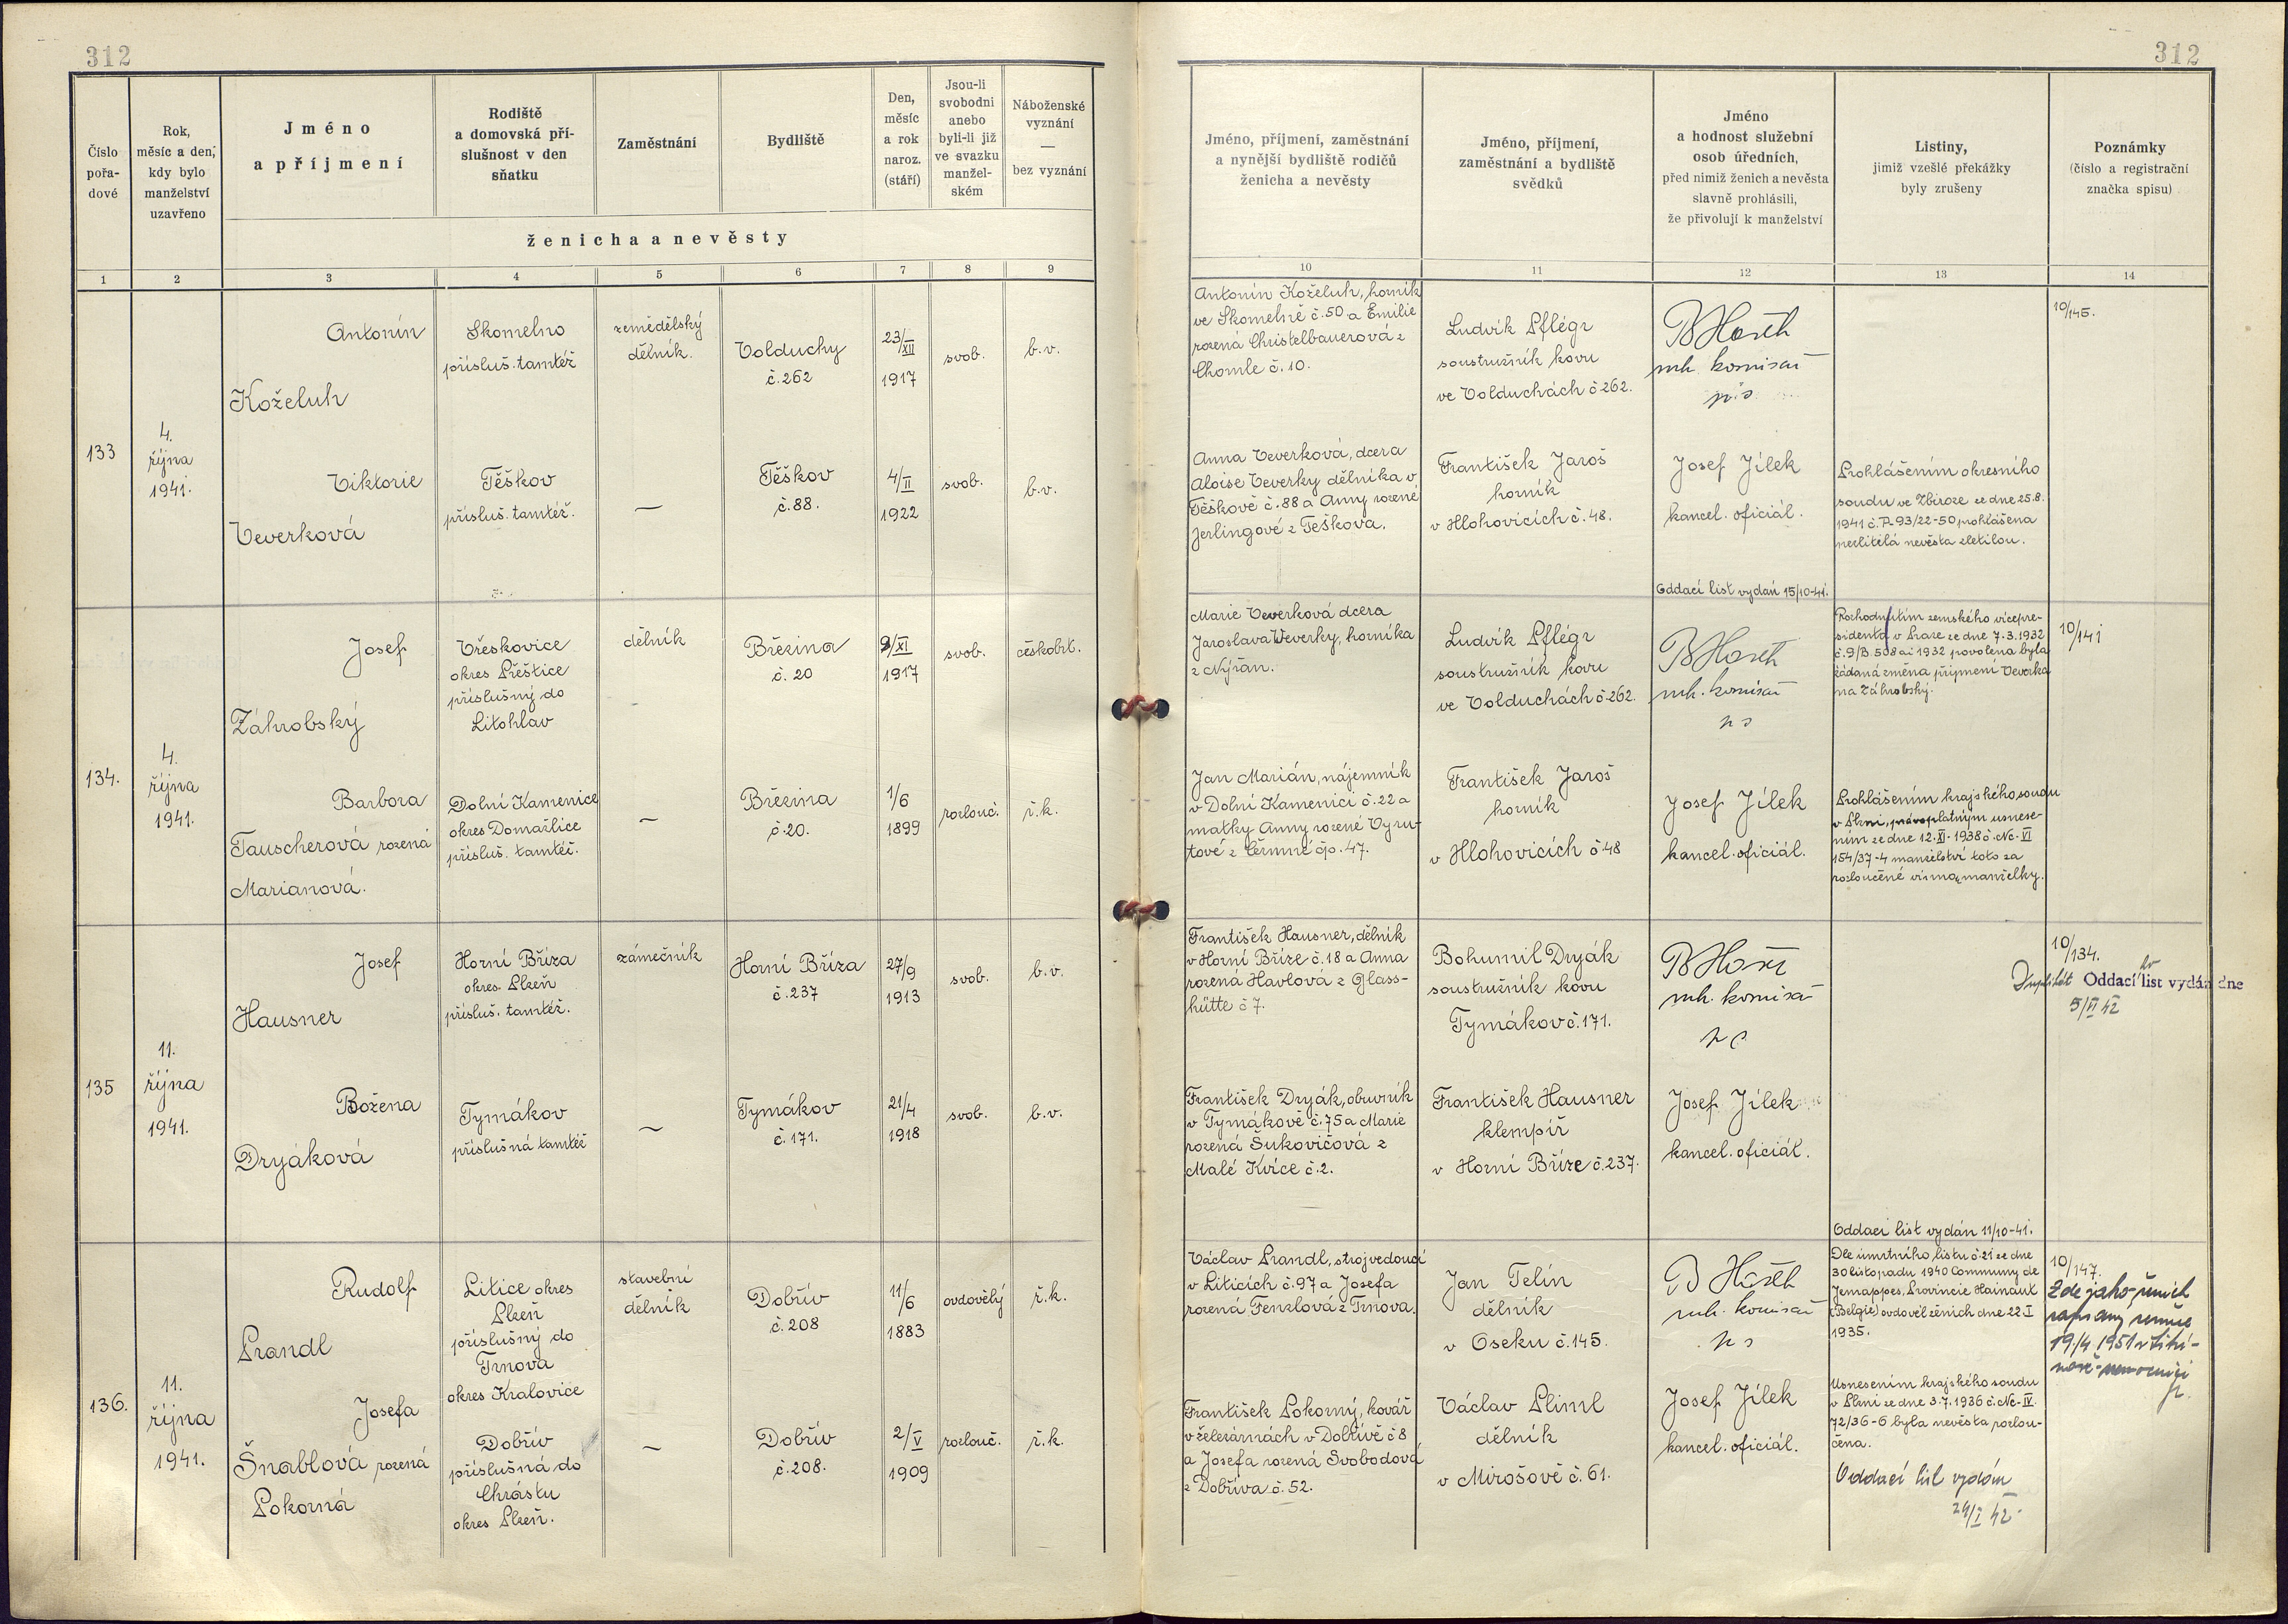 312
312
Číslo pořa- dové
Rok, měsíc a den, kdy bylo manželství uzavřeno
Jméno a příjmení
Rodiště a domovská pří- slušnost v den sňatku
Zaměstnání
Bydliště
Den, měsíc a rok naroz. (stáří)
Jsou-li svobodni anebo byli-li již ve svazku manžel- ském
Náboženské vyznání — bez vyznání
ženicha a nevěsty
Jméno, příjmení, zaměstnání a nynější bydliště rodičů ženicha a nevěsty
Jméno, příjmení, zaměstnání a bydliště svědků
Jméno a hodnost služební osob úředních, před nimiž ženich a nevěsta slavně prohlásili, že přivolují k manželství
Listiny, jimiž vzešlé překážky byly zrušeny
Poznámky (číslo a registrační značka spisu)
1 2 3 4 5 6 7 8 9 10 11 12 13 14
133
4.
října
1941.
Antonín
Koželuh
Skomelno
přísluš. tamtéž
zemědělský
dělník.
Volduchy
č.262
23/XII
1917
svob.
b.v.
Antonín Koželuh, horník
ve Skomelně č.50 a Emilie
rozená Christelbauerová z
Chomle č.10.
Ludvík Pflégr
soustružník kovu
ve Volduchách č.262.
mk. komisař
Viktorie
Veverková
Těškov
přísluš. tamtéž.
—
Těškov
č.88.
4/II
1922
svob.
b.v.
Anna Veverková, dcera
Aloise Veverky dělníka v
Těškově č.88 a Anny rozené
Jerlingové z Těškova.
František Jaroš
horník
v Hlohovicích č.48.
Josef Jílek
kancel. oficiál.
Prohlášením okresního
soudu ve Zbiroze ze dne 25.8.
1941 č. P-93/22-50 prohlášena
nezletilá nevěsta zletilou.
Oddací list vydán 15/10-41.
10/145.
134.
4.
října
1941.
Josef
Záhrobský
Vřeskovice
okres Přeštice
příslušný do
Litohlav
dělník
Březina
č. 20
9/XI
1917
svob.
českobrt.
Marie Veverková dcera
Jaroslava Veverky, horníka
z Nýřan.
Ludvík Pflégr
soustružník kovu
ve Volduchách č.262.
mk. komisař
Rozhodnutím zemského vícepre-
sidenta v Praze ze dne 7.3.1932
č.9/B.508 ai 1932 povolena byla
žádaná změna příjmení Veverka
na Záhrobský.
10/141
Barbora
Tauscherová rozená
Marianová.
Dolní Kamenice
okres Domažlice
přísluš. tamtéž.
—
Březina
č.20.
1/6
1899
rozlouč.
ř.k.
Jan Marián, nájemník
v Dolní Kamenici č.22 a
matky Anny rozené Vyru-
tové z Čermné čp. 47.
František Jaroš
horník
v Hlohovicích č.48
Josef Jílek
kancel. oficiál.
Prohlášením krajského soudu
v Plzni, právoplatným usnese-
ním ze dne 12.XI.1938 č. Nc-VI
154/37-4 manželství toto za
rozloučené vinou manželky.
135
11.
října
1941.
Josef
Hausner
Horní Bříza
okres. Plzeň
přísluš. tamtéž.
zámečník
Horní Bříza
č.237
27/9
1913
svob.
b.v.
František Hausner, dělník
v Horní Bříze č.18 a Anna
rozená Havlová z Glass-
hütte č.7.
Bohumil Dryák
soustružník kovu
Tymákov č.171.
mk. komisař
10/134.
Duplikát Oddací list vydán dne
5/VI 42
Božena
Dryáková
Tymákov
příslušná tamtéž
—
Tymákov
č.171.
21/4
1918
svob.
b.v.
František Dryák, obuvník
v Tymákově č.75 a Marie
rozená Šukovičová z
Malé Kvíce č.2.
František Hausner
klempíř
v Horní Bříze č.237.
Josef Jílek
kancel. oficiál.
Oddací list vydán 11/10-41.
136.
11.
října
1941.
Rudolf
Prandl
Litice okres
Plzeň
příslušný do
Trnova
okres Kralovice
stavební
dělník
Dobřív
č.208
11/6
1883
ovdovělý
ř.k.
Václav Prandl, strojvedoucí
v Liticích č.97 a Josefa
rozená Fenzlová z Trnova.
Jan Telín
dělník
v Oseku č.145.
mk. komisař
Dle úmrtního listu č.21 ze dne
30 listopadu 1940 Communy de
Jemappes, Provincie Hainaut
(Belgie) ovdověl ženich dne 22.I
1935.
10/147.
Zde jako ženich
zapsaný zemře
19/4 1951 v
Josefa
Šnablová rozená
Pokorná
Dobřív
příslušná do
Chrástu
okres Plzeň.
—
Dobřív
č.208.
2/V
1909
rozlouč.
ř.k.
František Pokorný, kovář
v železárnách v Dobřívě č.8
a Josefa rozená Svobodová
z Dobříva č.52.
Václav Pliml
dělník
v Mirošově č.61.
Josef Jílek
kancel. oficiál.
Usnesením krajského soudu
v Plzni ze dne 3.7.1936 č. Nc-IV.
72/36-6 byla nevěsta rozlou-
čena.
Oddací list vydán
24/I 42.